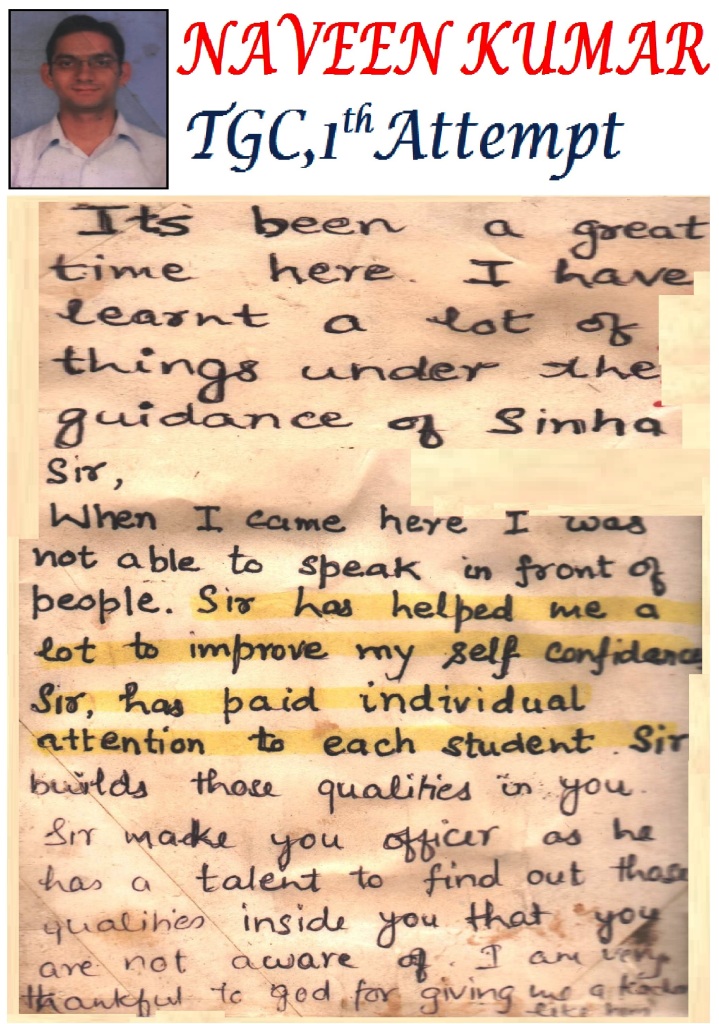 NAVEEN KUMAR
TGC,1th Attempt
Its been a great
time here. I have
learnt a lot of
things under the
guidance of Sinha
Sir,
When I came here I was
not able to speak in front of
people. Sir has helped me a
lot to improve my self confidance
Sir, has paid individual
attention to each student. Sir
builds those qualities in you.
Sir make you officer as he
has a talent to find out those
qualities inside you that you
are not aware of. I am very
thankful to god for giving me a
like him